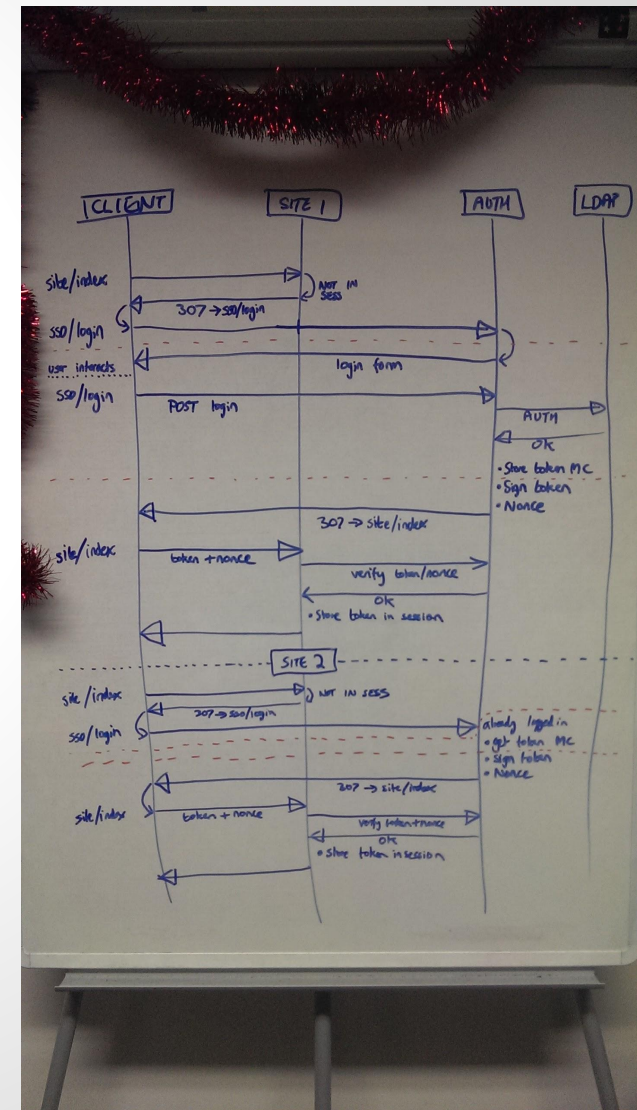 CLIENT SITE 1 AUTH LDAP
site/index
NOT IN
SESS
307 → sso/login
sso/login
login form
user interacts
sso/login
POST login
AUTH
OK
• Store token MC
• Sign token
• Nonce
307 → site/index
site/index
token + nonce
verify token/nonce
OK
• Store token in session
SITE 2
site/index
NOT IN SESS
307 → sso/login
sso/login
already logged in
• get token MC
• sign token
• Nonce
307 → site/index
site/index
token + nonce
verify token+nonce
OK
• store token in session